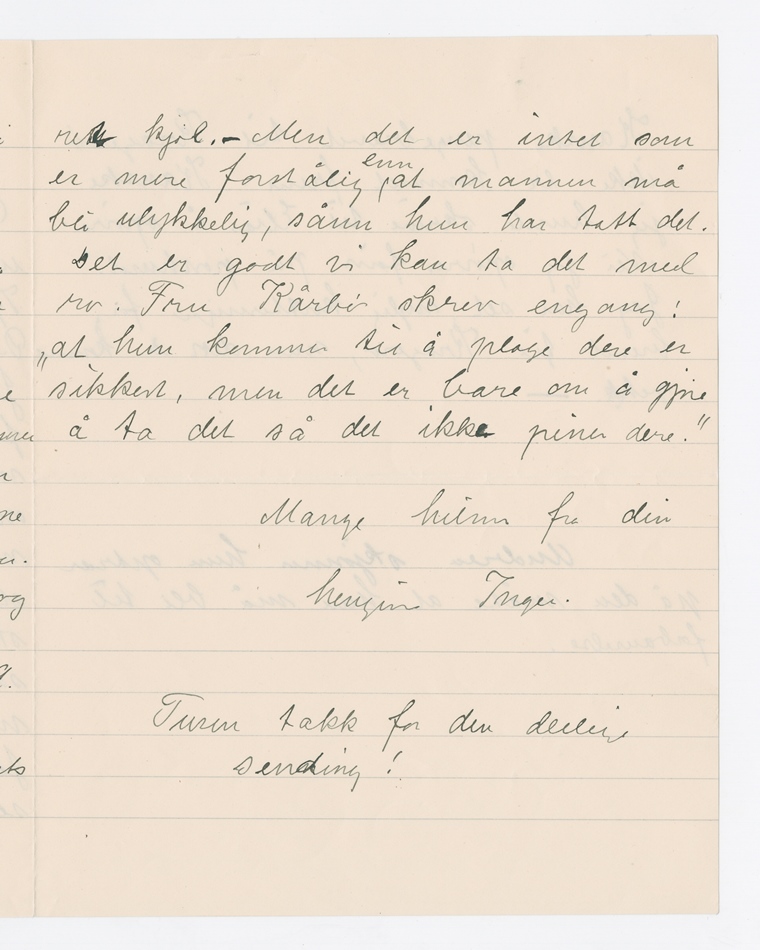 rett kjøl. – Men det er intet som
er mere forstålig enn at mannen må
bli ulykkelig, sånn hun har tatt det.
Det er godt vi kan ta det med
ro. Fru Kårbø skrev engang:
„at hun kommer til å plage dere er
sikkert, men det er bare om å gjøre
å ta det så det ikke piner dere."
Mange hilsner fra din
hengivne Inger.
Tusen takk for den deilige
sending!